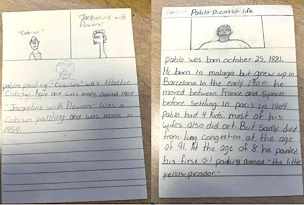 "Cubism"
"Jaqueline with
flowers"
pablos painting "Cubism" was
Cubism type and was made around 1907
"Jaqueline with flowers" was a
Cubism painting and was made in
1954
Pablo Picasso life
pablo was born october 25, 1881.
He born in malaga but grew up in
Barcelona In the early 1900 he
moved between France and Spain
before settling in paris in 1904
Pablo had 4 kids. most of his
wifes also did art. But Sadly died
from lung congestion at the age
of 91. At the age of 8 he painted
his first oil painting named "the little
yellow picador"